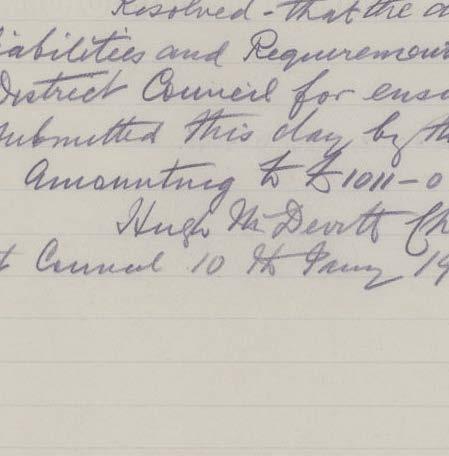 Resolved - that the a
iabilities and Requiremen
District Council for ensu
submitted this day by th
Amounting to £1011-0
Hugh McDevitt Ch
t Council 10th Jany 19